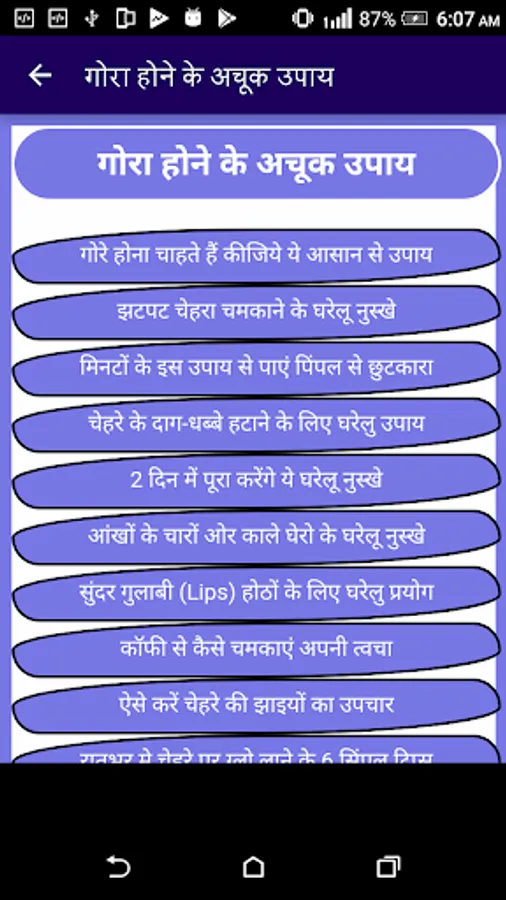 87% 6:07 AM
गोरा होने के अचूक उपाय
गोरा होने के अचूक उपाय
गोरे होना चाहते हैं कीजिये ये आसान से उपाय
झटपट चेहरा चमकाने के घरेलू नुस्खे
मिनटों के इस उपाय से पाएं पिंपल से छुटकारा
चेहरे के दाग-धब्बे हटाने के लिए घरेलु उपाय
2 दिन में पूरा करेंगे ये घरेलू नुस्खे
आंखों के चारों ओर काले घेरो के घरेलू नुस्खे
सुंदर गुलाबी (Lips) होठों के लिए घरेलु प्रयोग
कॉफी से कैसे चमकाएं अपनी त्वचा
ऐसे करें चेहरे की झाइयों का उपचार
रातभर मे चेहरे पर ग्लो लाने के 6 सिंपल टिप्स